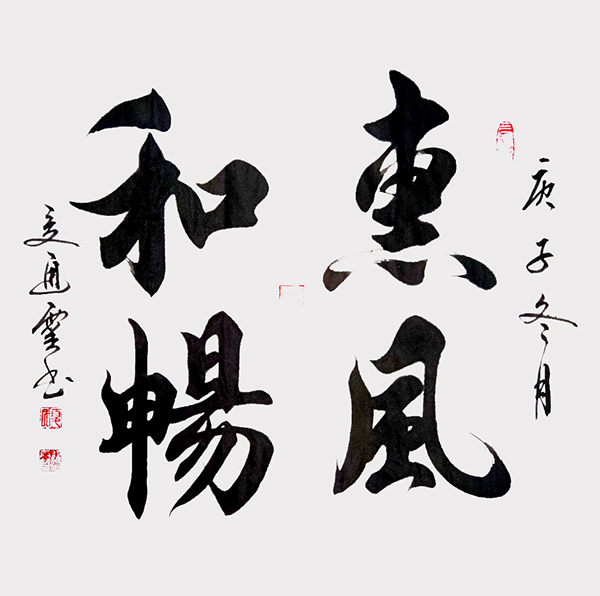 庚子冬月
惠風
和暢
通雲书